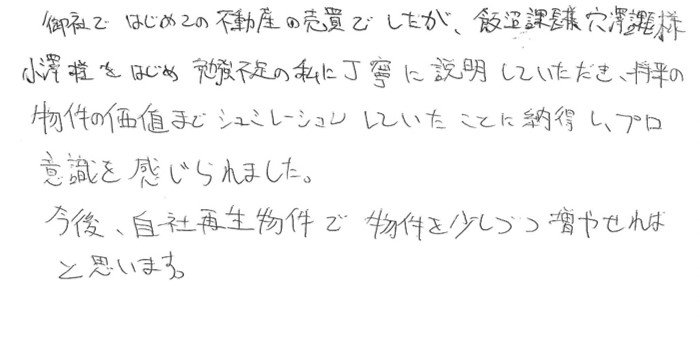 御社ではじめての不動産の売買でしたが、飯沼課長様 穴澤課長様
小澤様をはじめ 勉強不足の私に丁寧に説明していただき、将来の
物件の価値までシュミレーションしていたことに納得し、プロ
意識を感じられました。
今後、自社再生物件で 物件を少しづつ増やせれば
と思います。